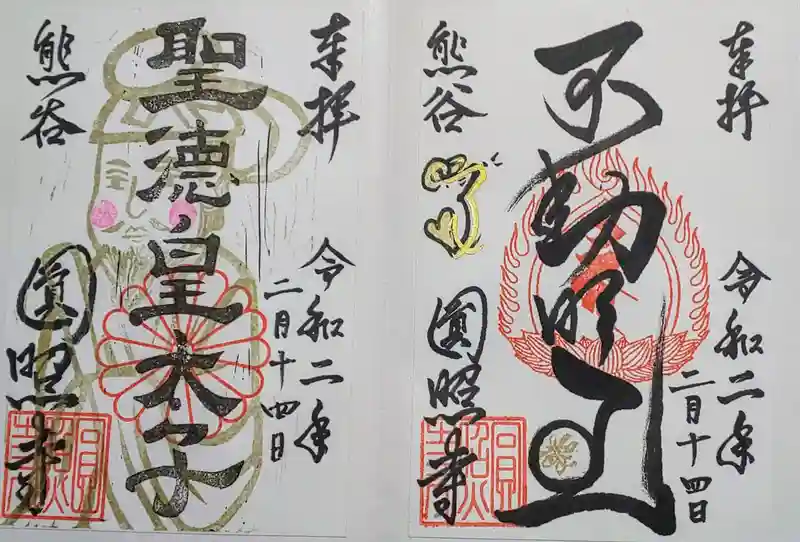 奉拝
令和二年
二月十四日
聖德皇太子
熊谷
圓照寺
奉拝
令和二年
二月十四日
不動明王
熊谷
圓照寺